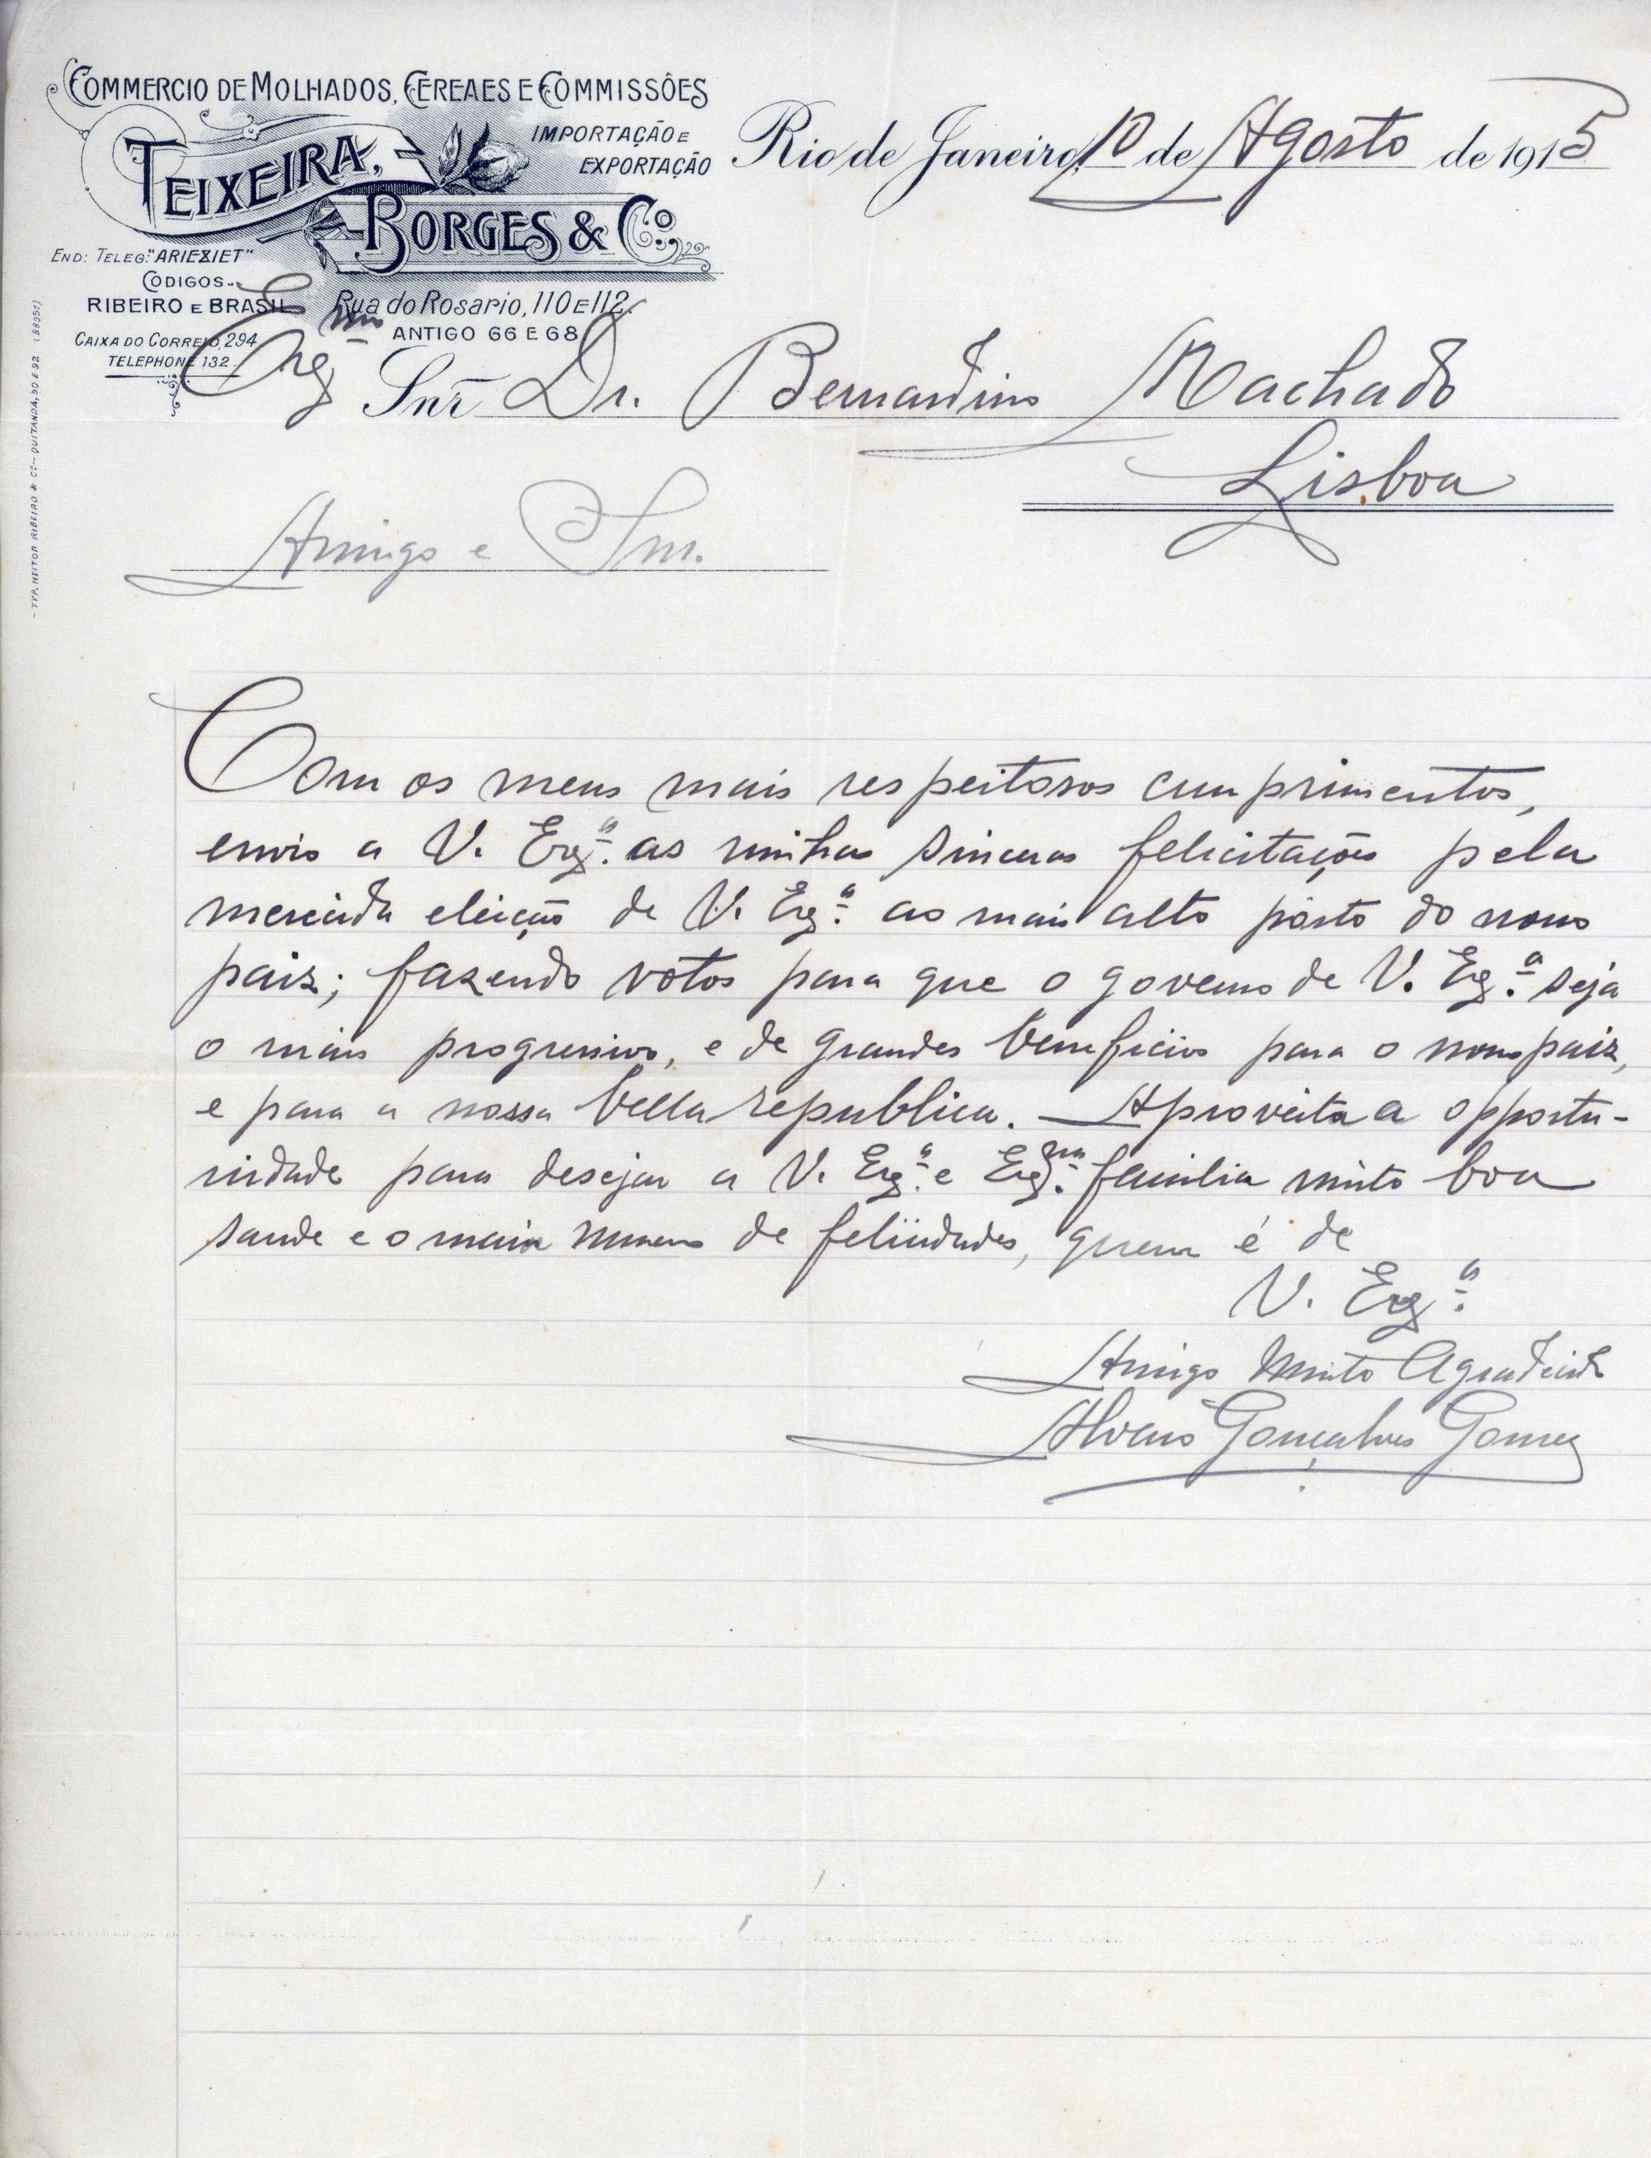 COMMERCIO DE MOLHADOS, CEREAES E COMMISSÕES
IMPORTAÇÃO E
EXPORTAÇÃO
TEIXEIRA,
BORGES & Cº.
END: TELEG: "ARIEXIET"
CODIGOS
RIBEIRO E BRASIL
CAIXA DO CORREIO, 294
TELEPHONE 132
Rua do Rosario, 110 E 112.
ANTIGO 66 E 68
TYP. HEITOR RIBEIRO & Cº - QUITANDA, 90 E 92
Rio de Janeiro, 10 de Agosto de 1915
Exmo
Snr. Dr. Bernardino Machado
Lisboa
Amigo e Snr.
Com os meus mais respeitosos cumprimentos,
envio a V. Exª. as minhas sinceras felicitações pela
merecida eleição de V. Exª. ao mais alto pósto do nosso
paiz; fazendo votos para que o governo de V. Exª. seja
o mais progressivo, e de grandes beneficios para o nosso paiz,
e para a nossa bella republica. Aproveita a opportu-
nidade para desejar a V. Exª. e Exma. familia muito boa
saude e o maior numero de felicidades, quem é de
V. Exª.
Amigo Muito Agradecido
Alvaro Gonçalves Gomes